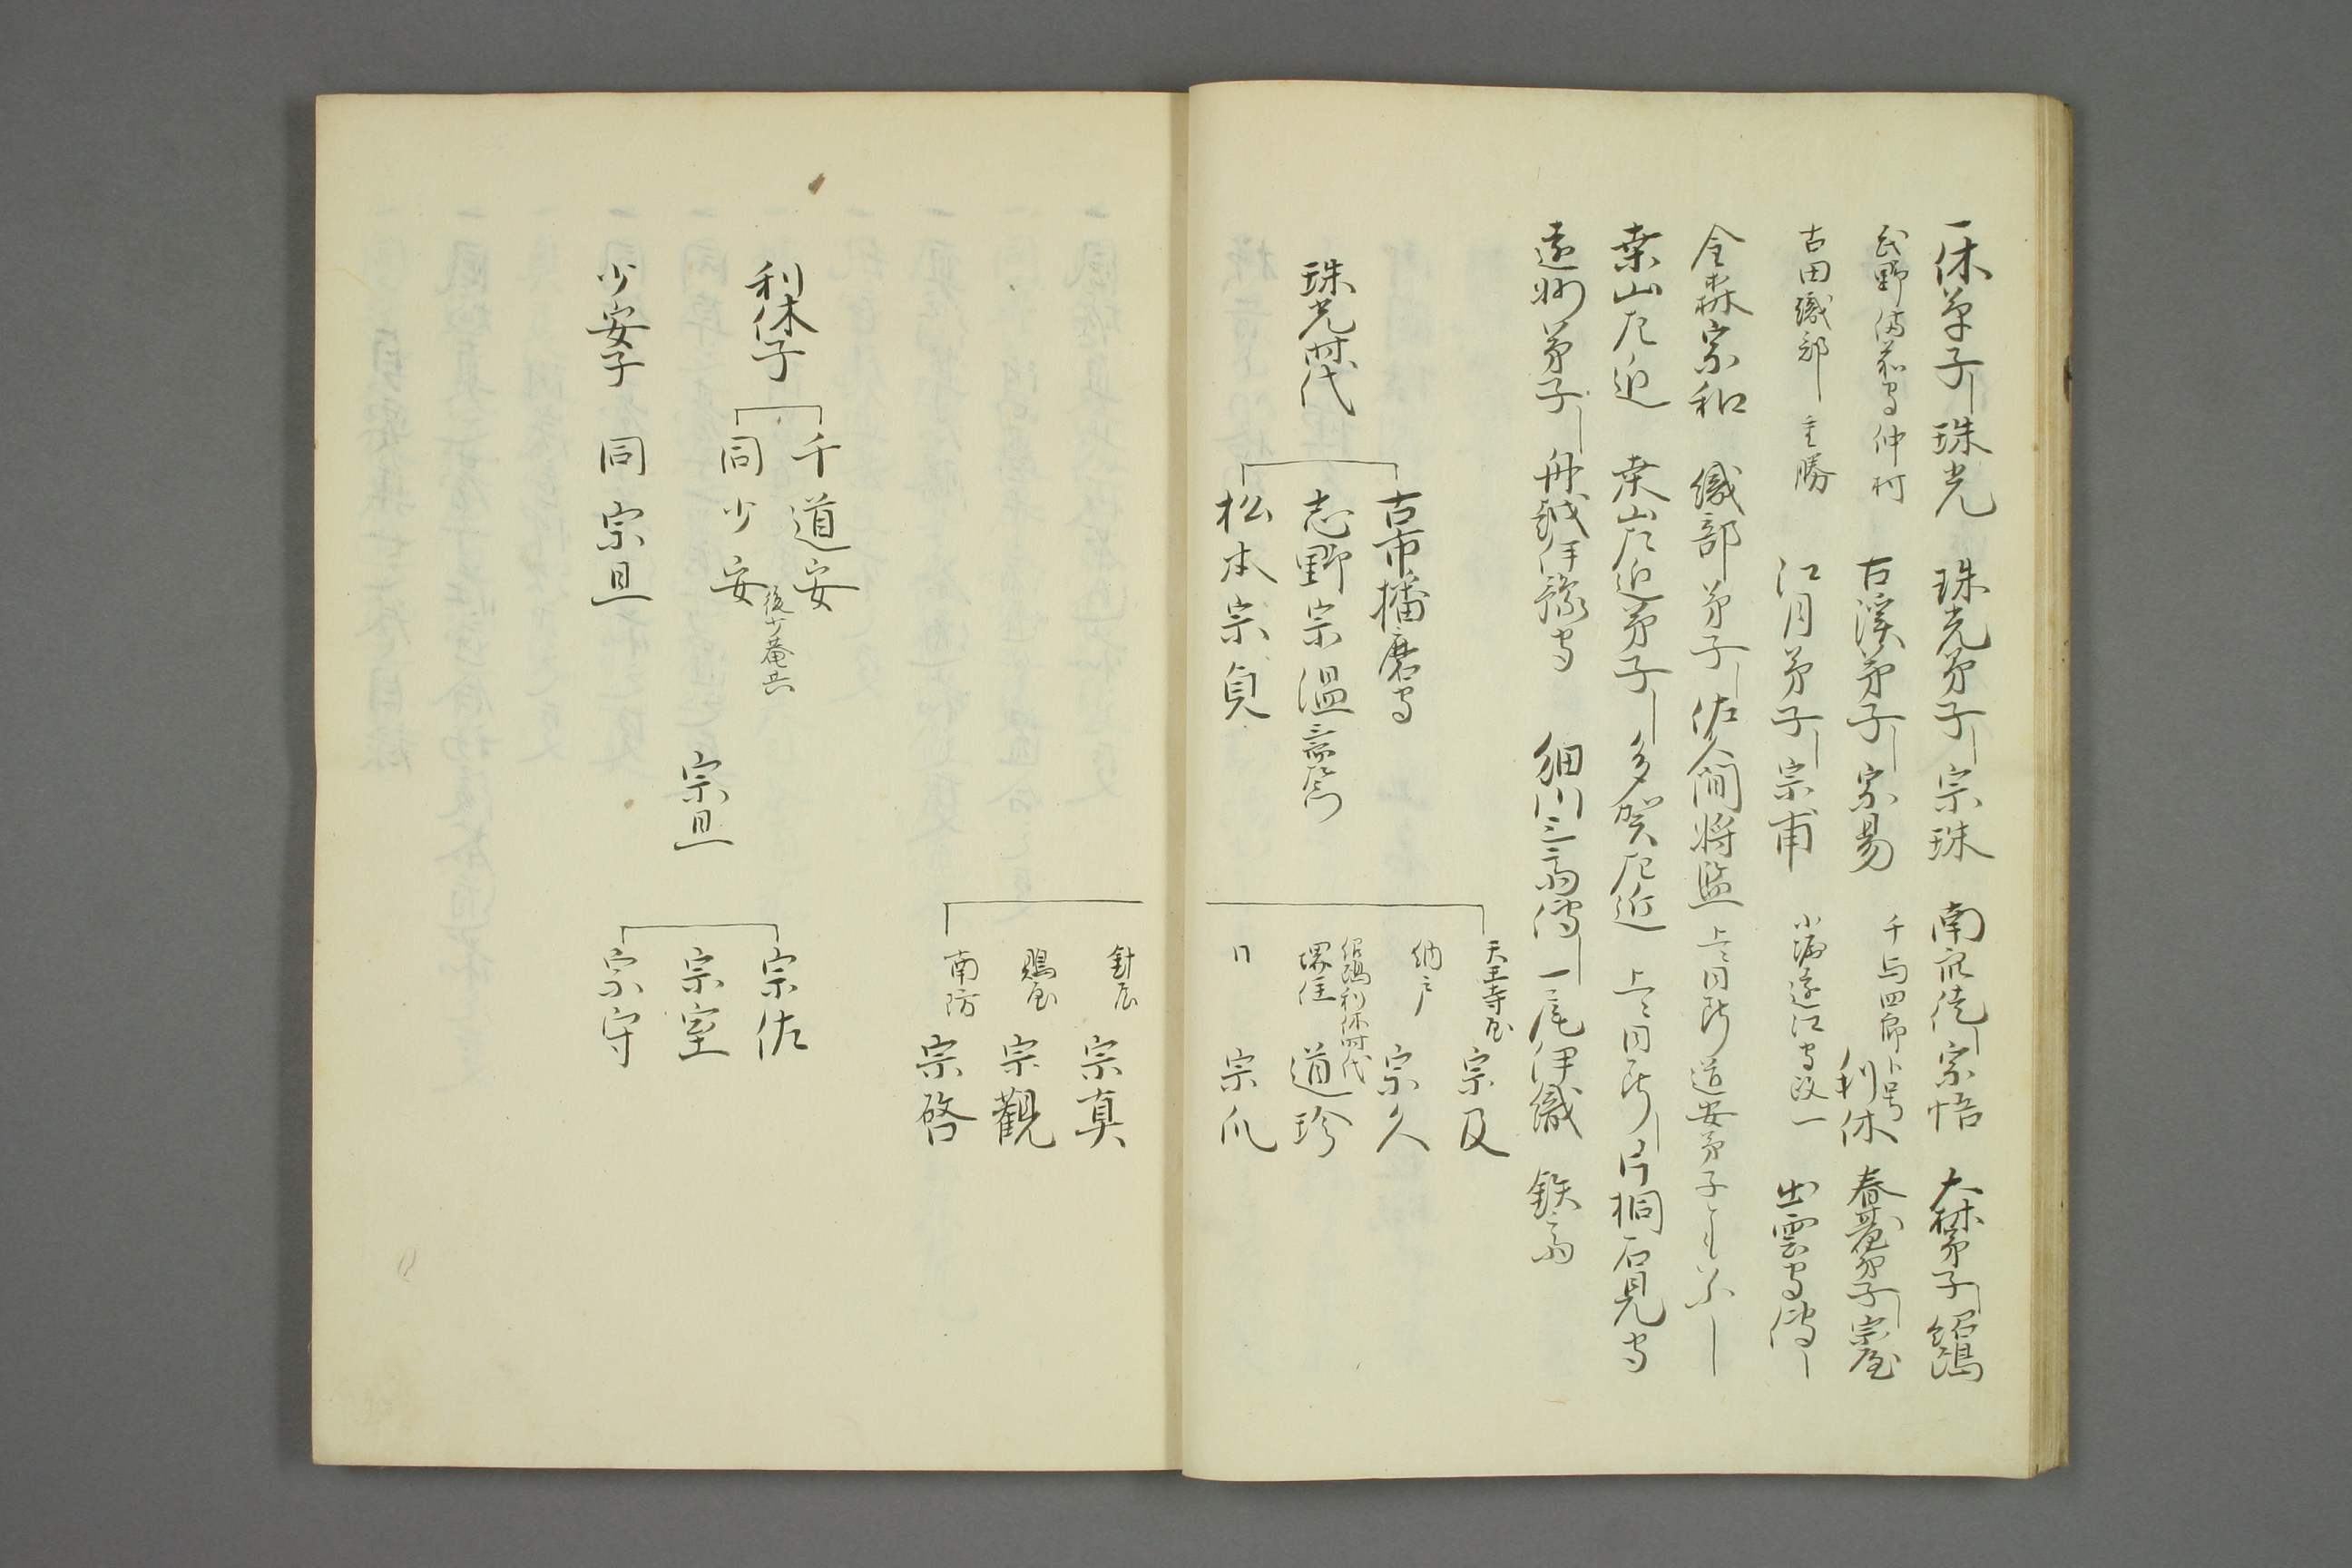 一休弟子 珠光 珠光弟子 宗珠 南宗徒 宗悟 大林弟子 紹鴎
武野 因幡守 仲村 古溪弟子 宗易 千与四郎ト号 利休 春屋弟子 宗屋
古田織部 重勝 江月弟子 宗甫 小堀遠江守政一 出雲守傳
金森宗和 織部弟子 佐久間将監 上ニ同断 道安弟子
桒山左近 桒山左近弟子 多賀左近 上ニ同断 片桐石見守
遠州弟子 舟越伊豫守 細川三斎傳 一尾伊織 鉄斎
珠光時代
古市播磨守
志野宗温
松本宗貞
紹鴎利休時代
天王寺屋 宗及
納戸 宗久
堺住 道珍
同 宗瓜
針辰 宗真
鵙屋 宗觀
南防 宗啓
利休子
千道安
同少安 後少菴共
少安子 同宗旦
宗旦
宗佐
宗室
宗守